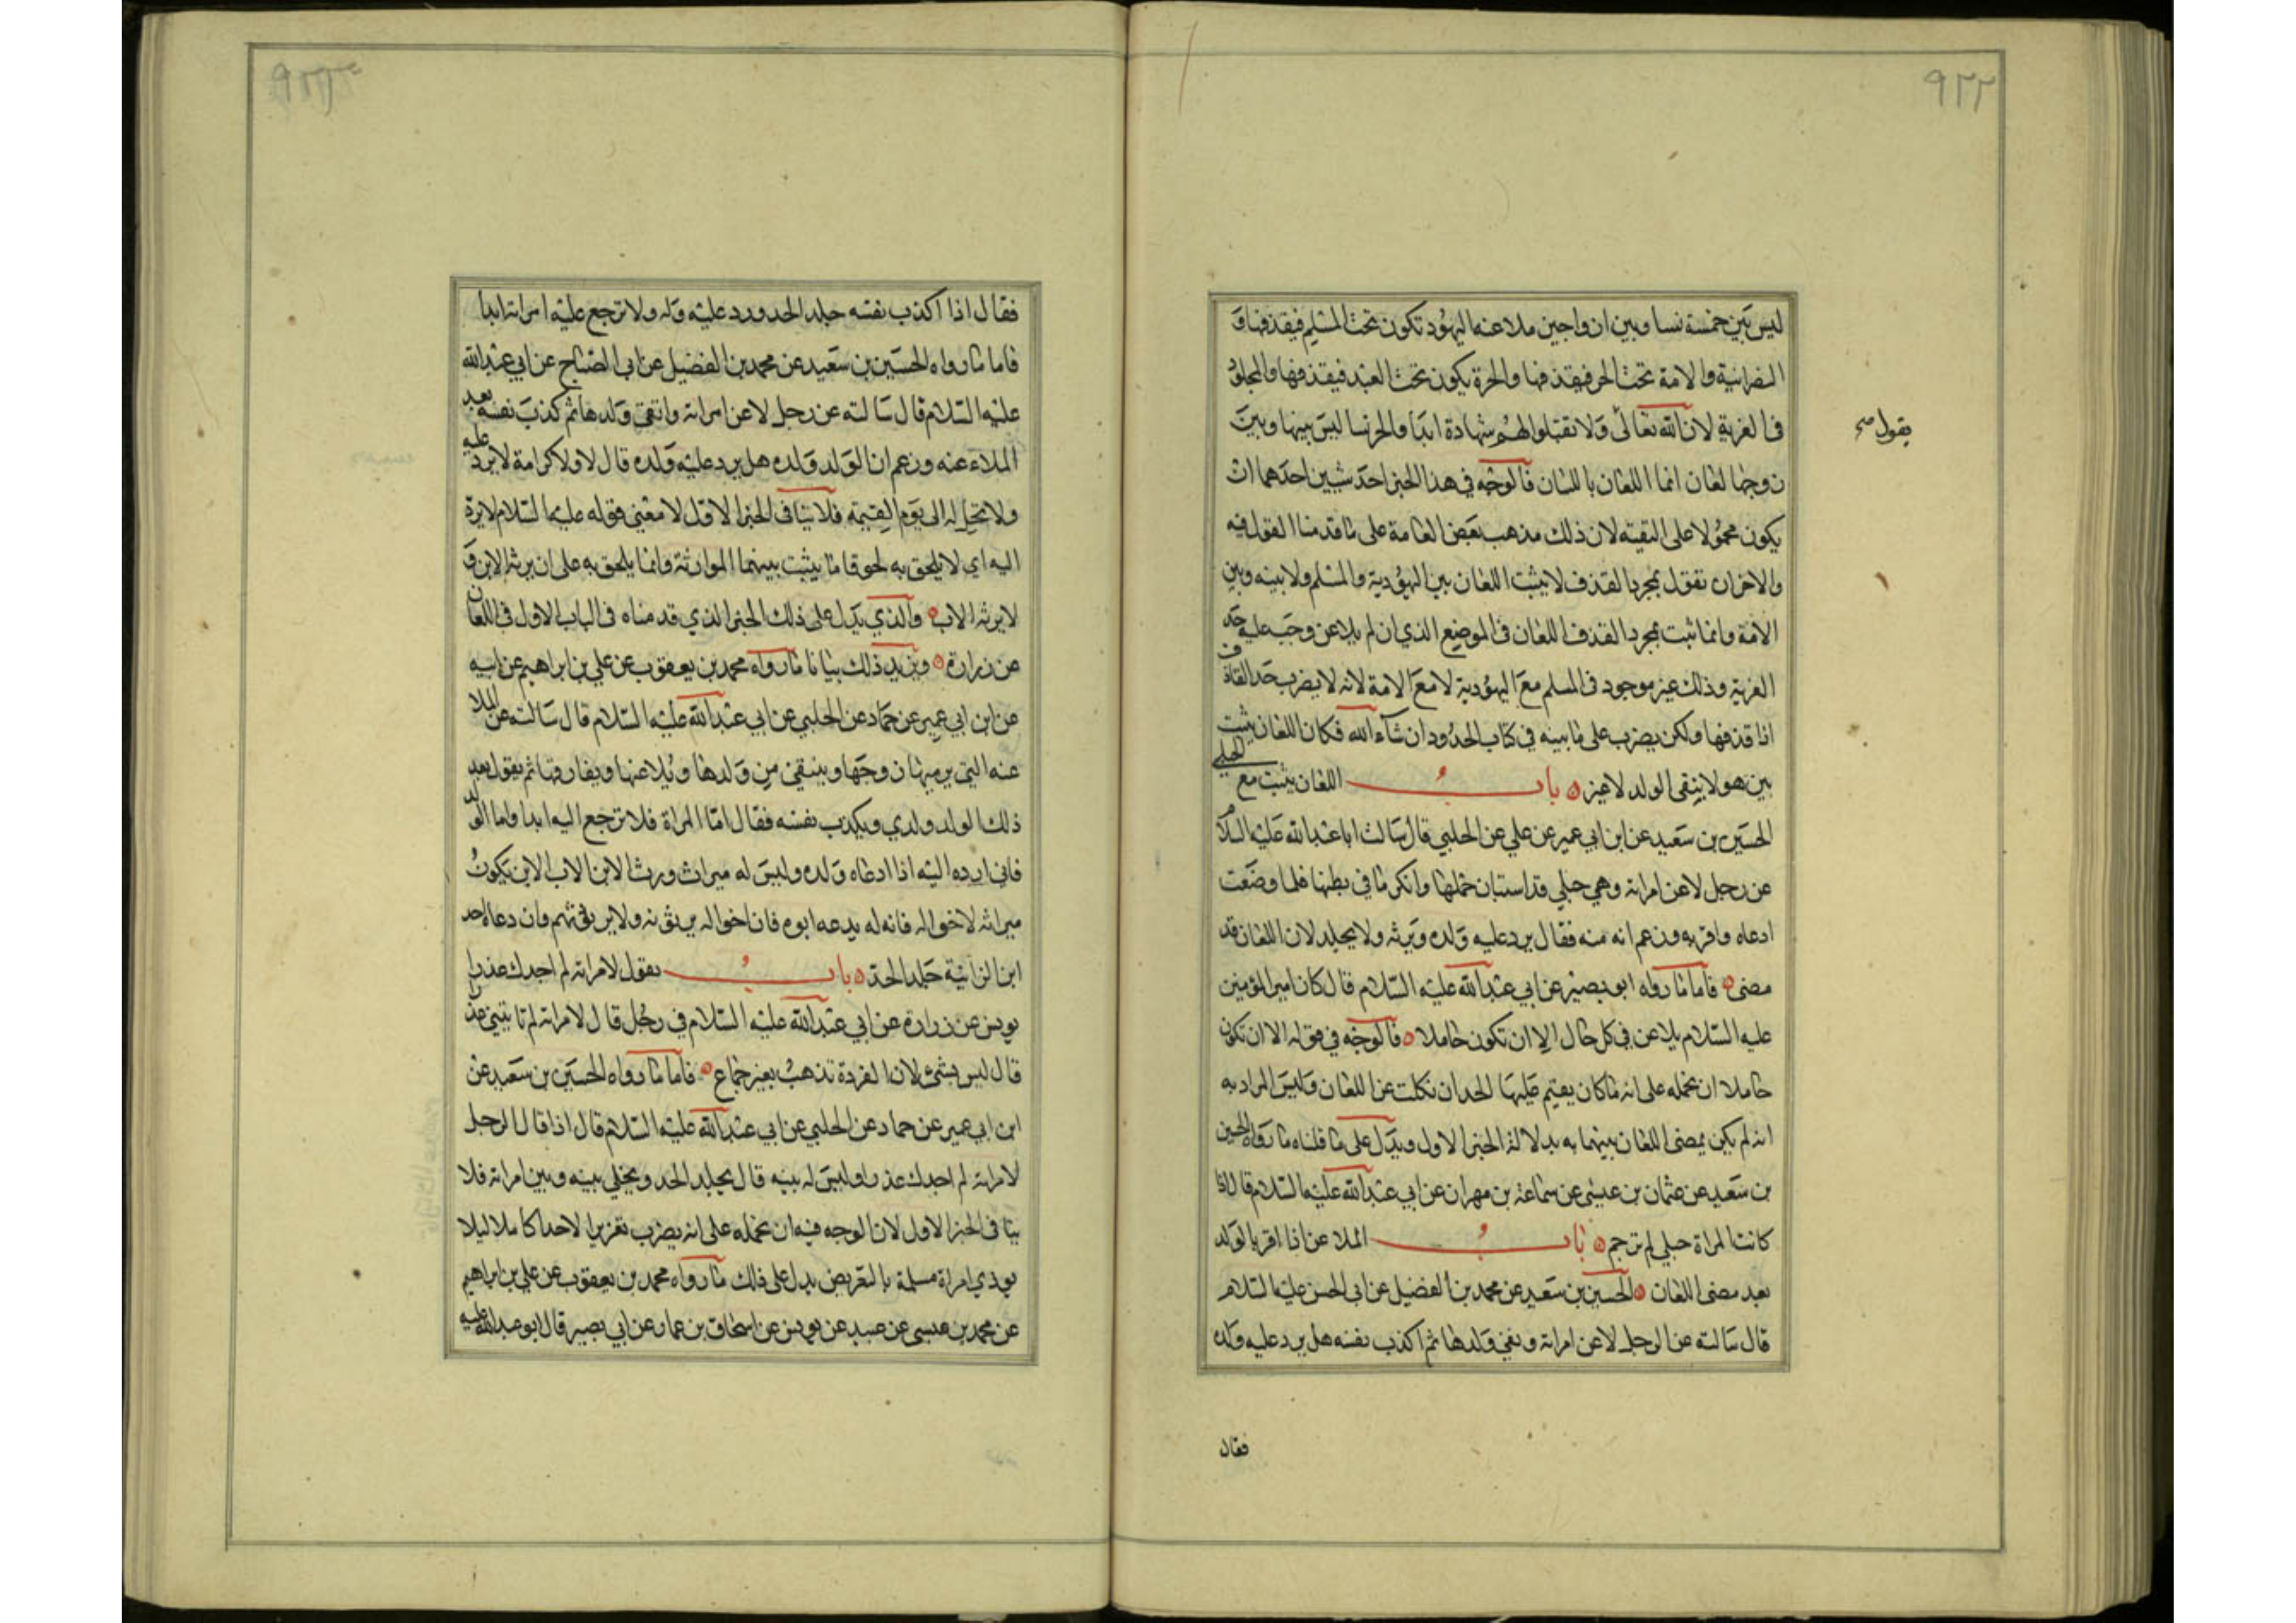 ٩٢٢
ليس بين خمسة نسا وبين ازواجهن ملاعنه اليهود تكون تحت المسلم فيقذفها و
النصرانية والامة تحت الحر فيقذفها والحرة يكون تحت العبد فيقذفها والمجلود
في الفرية لان الله تعالى ولا تقبلوا لهم شهادة ابدا والخرسا ليس بينها وبين
يقول صح
زوجها لعان انما اللعان باللسان فالوجه في هذا الخبر احد شيين احدهما ان
يكون محمولا على التقيه لان ذلك مذهب بعض العامة على ما قدمنا القول فيه
والاخر ان نقول بمجرد القذف لا يثبت اللعان بين اليهودية والمسلم ولا بينه وبين
الامة وانما ثبت بمجرد القذف اللعان في الموضع الذي ان لم يلاعن وجب عليه حد
الفرية وذلك غير موجود في المسلم مع اليهودية لا مع الامة لانه لا يضرب حد القاذف
اذا قذفها ولكن يضرب على ما بينه في كتاب الحدود ان شاء الله فكان اللعان يثبت
بين هو لا ينقى الولد لا غير باب اللعان يثبت مع الحبلى
الحسين بن سعيد عن ابن ابي عمير عن علي عن الحلبي قال سالت ابا عبد الله عليه السلام
عن رجل لاعن امراته وهي حبلي قد استبان حملها وانكر ما في بطنها فلما وضعت
ادعاه واقر به وزعم انه منه فقال يرد عليه ولده ويرثه ولا يجلد لان اللعان قد
مضى فاما ما رواه ابو بصير عن ابي عبد الله عليه السلام قال كان امير المؤمنين
عليه السلام يلاعن في كل حال الا ان تكون حاملا فالوجه في قوله الا ان تكون
حاملا ان نحمله على انه ما كان يقيم عليها الحد ان نكلت عن اللعان وليس المراد به
انه لم يكن يمضى اللعان بينهما به بدلالة الخبر الاول ويدل على ما قلناه ما رواه الحسين
بن سعيد عن عثمان بن عيسى عن سماعة بن مهران عن ابي عبد الله عليه السلام قال اذا
كانت المراة حبلى لم ترجم باب الملاعن اذا اقر بالولد
بعد مضى اللعان الحسين بن سعيد عن محمد بن الفضيل عن ابي الحسن عليه السلام
قال سالته عن الرجل لاعن امراته ونفى ولدها ثم اكذب نفسه هل يرد عليه ولده
فقال
فقال اذا اكذب نفسه جلد الحد ورد عليه وله ولا ترجع عليه امراته ابدا
فاما ما رواه الحسين بن سعيد عن محمد بن الفضيل عن ابي الصباح عن ابي عبد الله
عليه السلام قال سالته عن رجل لاعن امراته وانتفى ولدها ثم كذب نفسه بعد
الملاعنه وزعم ان الولد ولده هل يرد عليه ولده قال لا ولا كرامة لا يرد عليه
ولا تحل له الى يوم القيمة فلا ينافي الخبر الاول لا معنى قوله عليه السلام لا يرد
اليه اي لا يلحق به لحوقا ما يثبت بينهما الموارثة وانما يلحق به على ان يرثه الابن و
لا يرثه الاب والذي يدل على ذلك الخبر الذي قدمناه في الباب الاول في اللعان
عن زرارة ويزيد ذلك بيانا ما رواه محمد بن يعقوب عن علي بن ابراهيم عن ابيه
عن ابن ابي عمير عن حماد عن الحلبي عن ابي عبد الله عليه السلام قال سالته عن الملا
عنه التي يرميها زوجها وينتفي من ولدها ويلاعنها ويفارقها ثم يقول بعد
ذلك الولد ولدي ويكذب نفسه فقال اما المراة فلا ترجع اليه ابدا واما الولد
فاني ارده اليه اذا ادعاه ولده وليس له ميراث ورث الابن الاب الابن يكون
ميراثه لاخواله فانه له يدعه ابوه فان اخواله يرثونه ولا يرثهم وان دعاه احد
ابن الزانية جلد الحد باب يقول لامراته لم اجدك عذرا
يونس عن زرارة عن ابي عبد الله عليه السلام في رجل قال لامراته لم تاتيني عذرا
قال ليس بشئ لان العذرة تذهب بغير جماع فاما ما رواه الحسين بن سعيد عن
ابن ابي عمير عن حماد عن الحلبي عن ابي عبد الله عليه السلام قال اذا قال الرجل
لامراته لم اجدك عذرا وليس له بينه قال يجلد الحد ويخلي بينه وبين امراته فلا
ينافي الخبر الاول لان الوجه فيه ان نحمله على انه يضرب تعزيرا لا حدا كاملا ليلا
يوذي امراة مسلمة بالتعريض يدل على ذلك ما رواه محمد بن يعقوب عن علي بن ابراهيم
عن محمد بن عيسى عن عبيد عن يونس عن اسحاق بن عمار عن ابي بصير قال ابو عبد الله عليه